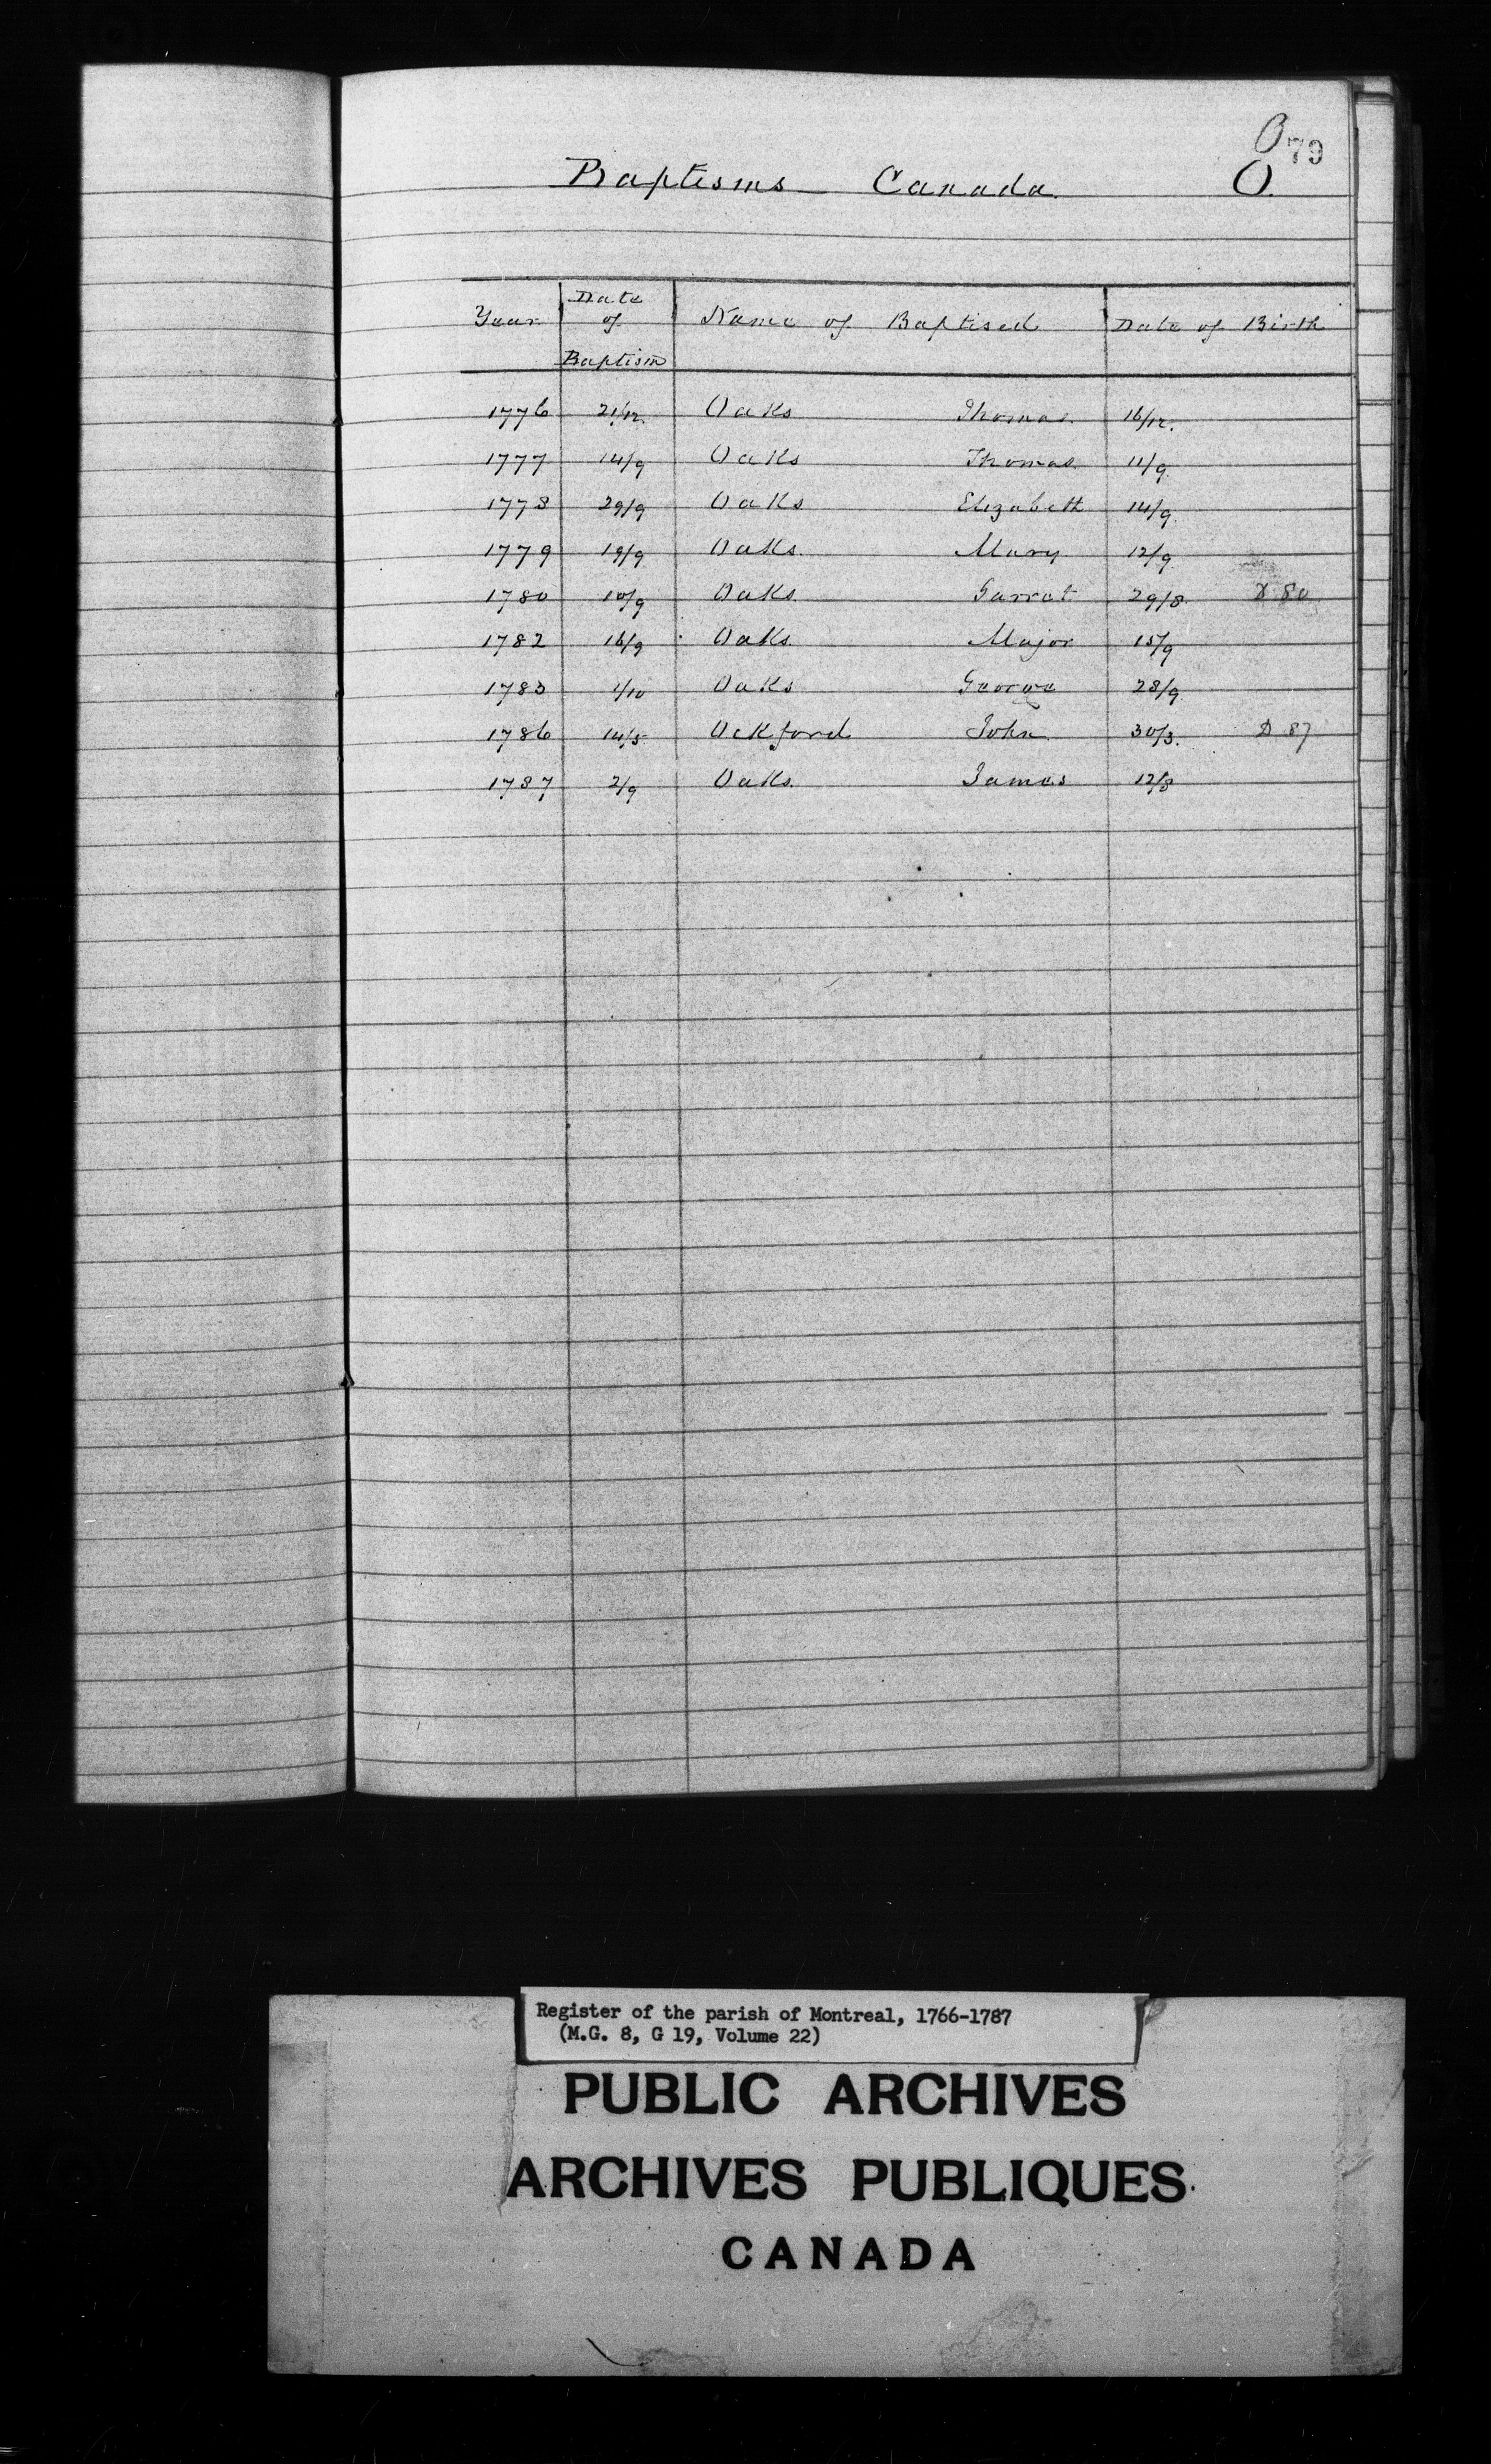 O 79
Baptisms Canada. O.
Year Date of Baptism Name of Baptised Date of Birth
1776 21/12. Oaks Thomas. 16/12.
1777 14/9 Oaks Thomas. 11/9.
1778 29/9 Oaks Elizabeth 14/9.
1779 19/9 Oaks. Mary 12/9.
1780 10/9 Oaks. Garrat 29/8. D 80
1782 16/9 Oaks. Major 15/9
1783 1/10 Oaks George 28/9.
1786 14/5 Ockford John 30/3. D 87
1787 2/9 Oaks. James 12/8
Register of the parish of Montreal, 1766-1787
(M.G. 8, G 19, Volume 22)
PUBLIC ARCHIVES
ARCHIVES PUBLIQUES
CANADA